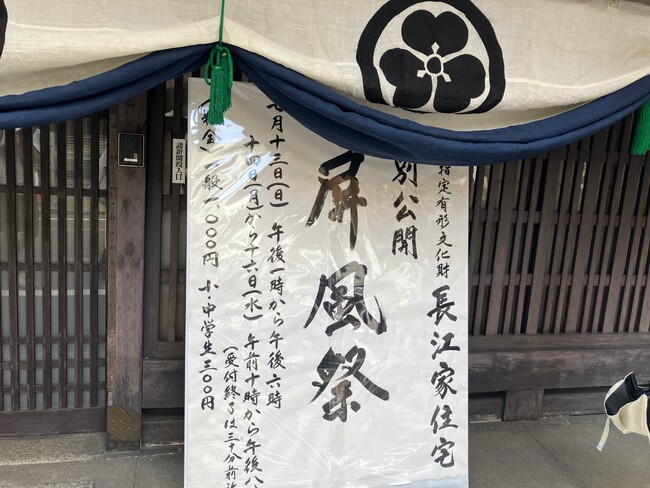 指定有形文化財 長江家住宅
別公開
屏風祭
月十三日(日) 午後一時から午後六時
十四日(月)から十六日(水) 午前十時から午後八
(受付終了は三十分前
金) 一般一〇〇〇円 小・中学生三〇〇円